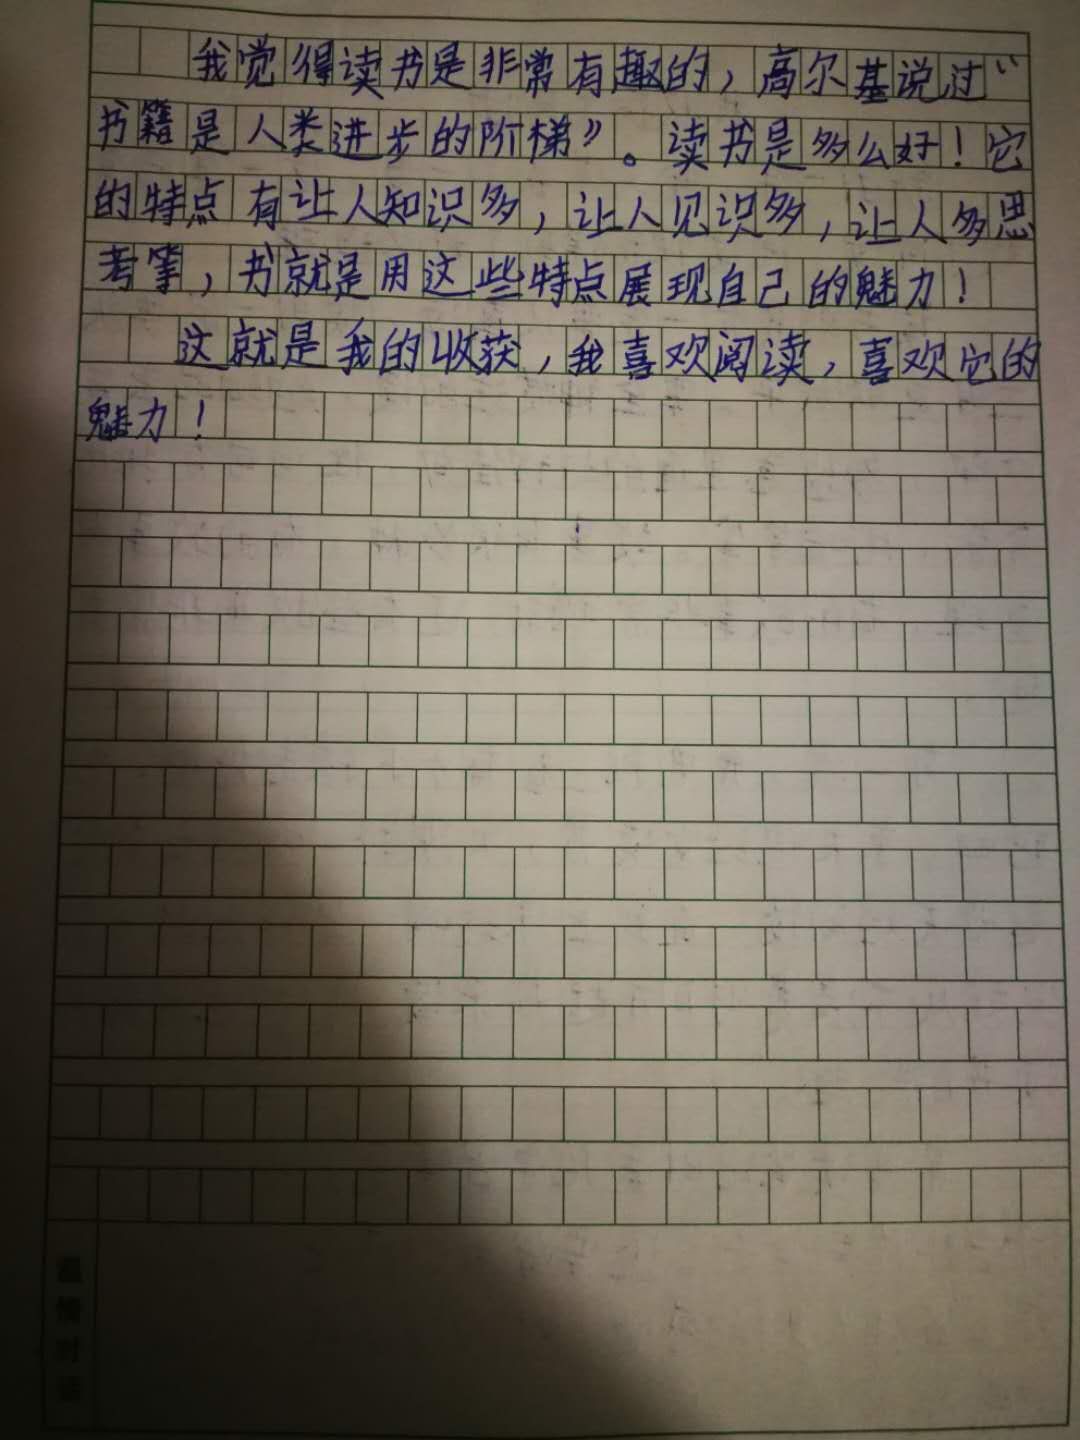 我觉得读书是非常有趣的，高尔基说过“
书籍是人类进步的阶梯”。读书是多么好！它
的特点有让人知识多，让人见识多，让人多思
考等，书就是用这些特点展现自己的魅力！
这就是我的收获，我喜欢阅读，喜欢它的
魅力！